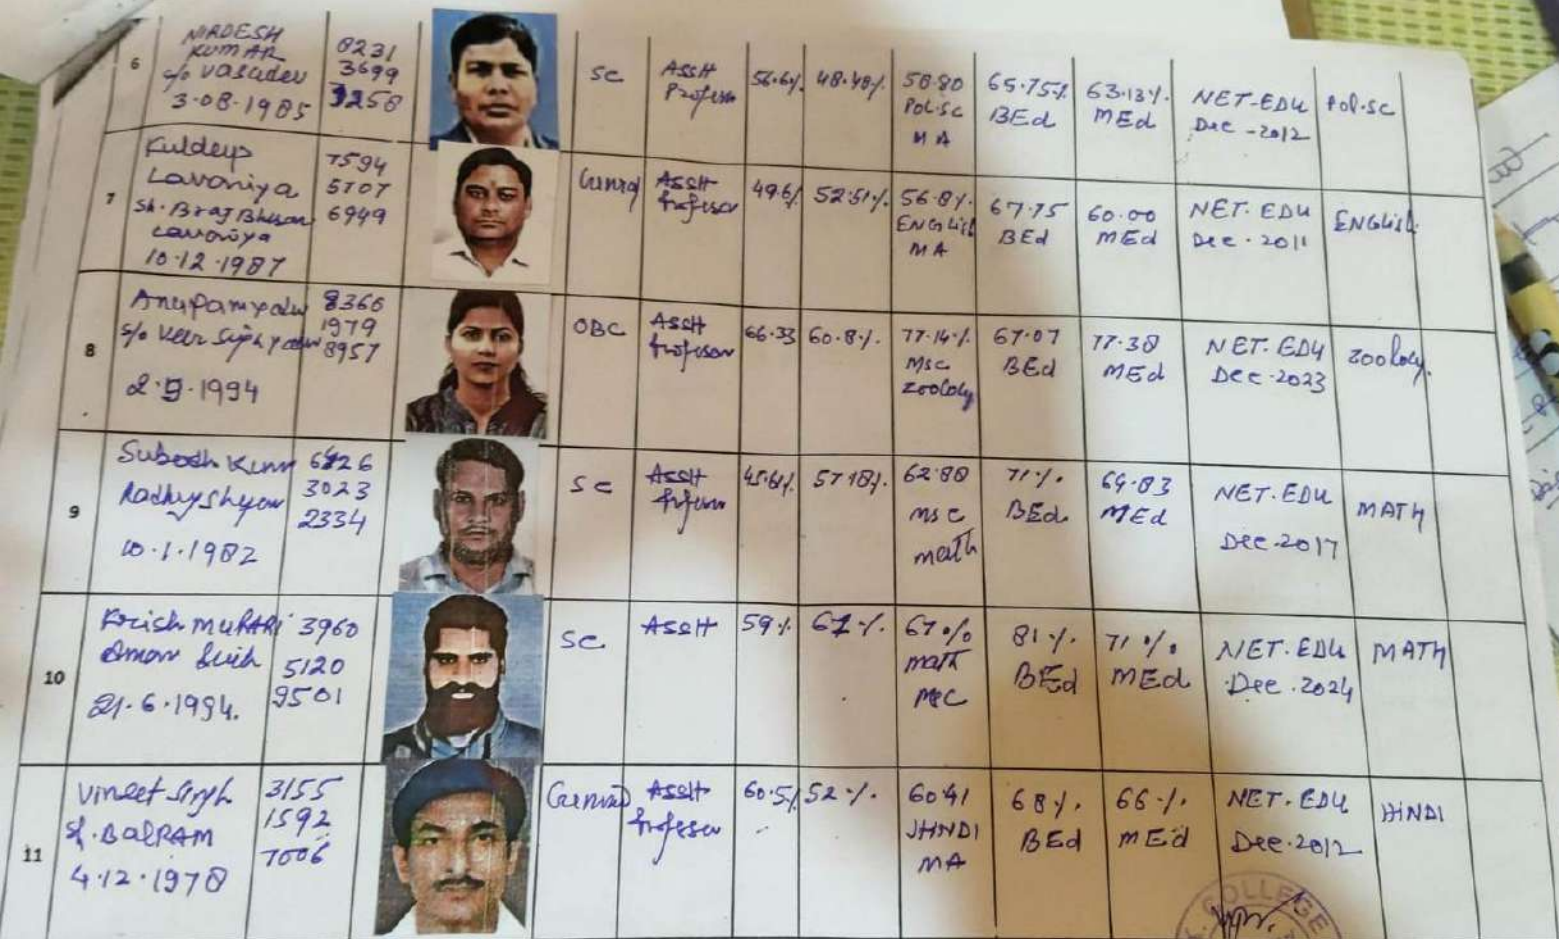 6
NIRDESH
KUMAR
S/o Vasudev
3.08.1985
8231
3699
3258
SC
Asstt
Professor
56.6%
48.48%
58.80
Pol.Sc
MA
65.75%
BEd
63.13%
MEd
NET-EDU
Dec-2012
Pol.Sc
7
Kuldeep
Lavaniya
Sh. Braj Bhusan
Lavaniya
10.12.1987
7594
5707
6949
Asstt
Professor
49.6%
52.51%
56.8%
ENGLISH
MA
67.75
BEd
60.00
MEd
NET. EDU
Dec. 2011
ENGLISH
8
S/o Veer Singh Yadav
1994
8360
1979
8957
OBC
Asstt
Professor
66.33
60.8%
77.14%
Msc
67.07
BEd
77.38
MEd
NET. EDU
Dec.2023
9
Radhyshyam
10.1.1982
3023
2334
SC
Asstt
57.18%
62.88
Msc
math
71%
BEd
69.83
MEd
NET.EDU
Dec.2017
MATH
10
21.6.1994.
3960
5120
9501
SC
Asstt
59%
67%
67%
math
Msc
81%
BEd
71%
MEd
NET.EDU
Dec.2024
MATH
11
Vineet Singh
BALRAM
4.12.1978
3155
1592
7006
Asstt
Professor
60.5%
52%
60.41
HINDI
MA
68%
BEd
66%
MEd
NET. EDU
Dec.2012
HINDI
COLLEGE